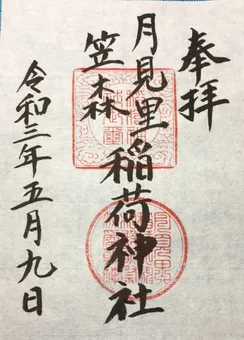 奉拝
月見里
笠森 稲荷神社
令和三年五月九日